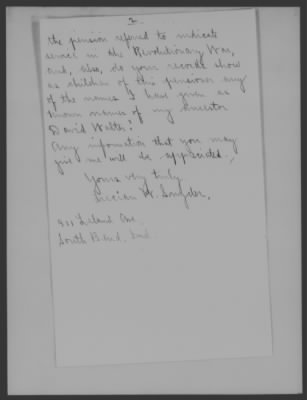 2
the pension referred to indicate
service in the Revolutionary War,
and, also, do your records show
as children of this pensioner any
of the names I have given as
known names of my ancestor
David Walter?
Any information that you may
give me will be appreciated.
Yours very truly,
Lucian W. Snyder,
911 Leland Ave.
South Bend, Ind.